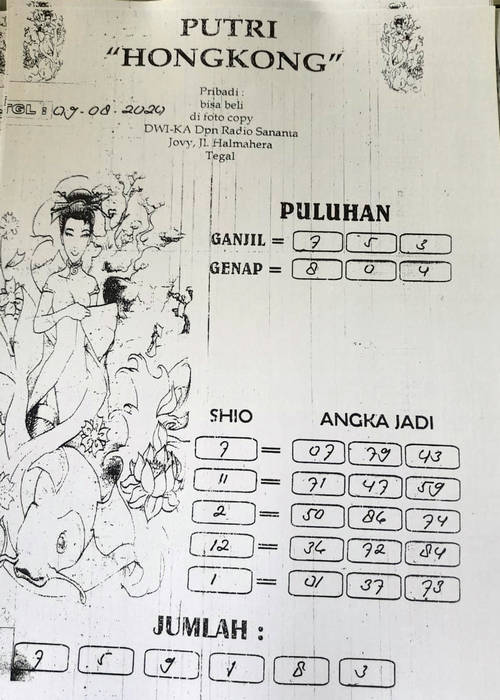 PUTRI
"HONGKONG"
Pribadi :
bisa beli
di foto copy
DWI-KA Dpn Radio Sananta
Jovy, Jl. Halmahera
Tegal
TGL : 09-08-2024
PULUHAN
GANJIL = 7 5 3
GENAP = 8 0 4
SHIO ANGKA JADI
7 = 07 79 43
11 = 71 47 59
2 = 50 86 74
12 = 34 72 84
1 = 01 37 73
JUMLAH :
7 5 9 1 8 3